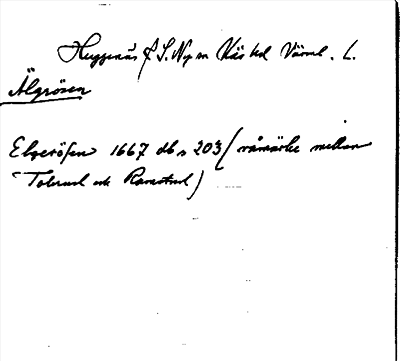 Huggenäs f S. Ny sn Näs hd Värml. L.
Älgrösen
Elgeröſen 1667 db s 203 (råmärke mellan
Tolerud och Ramstad)